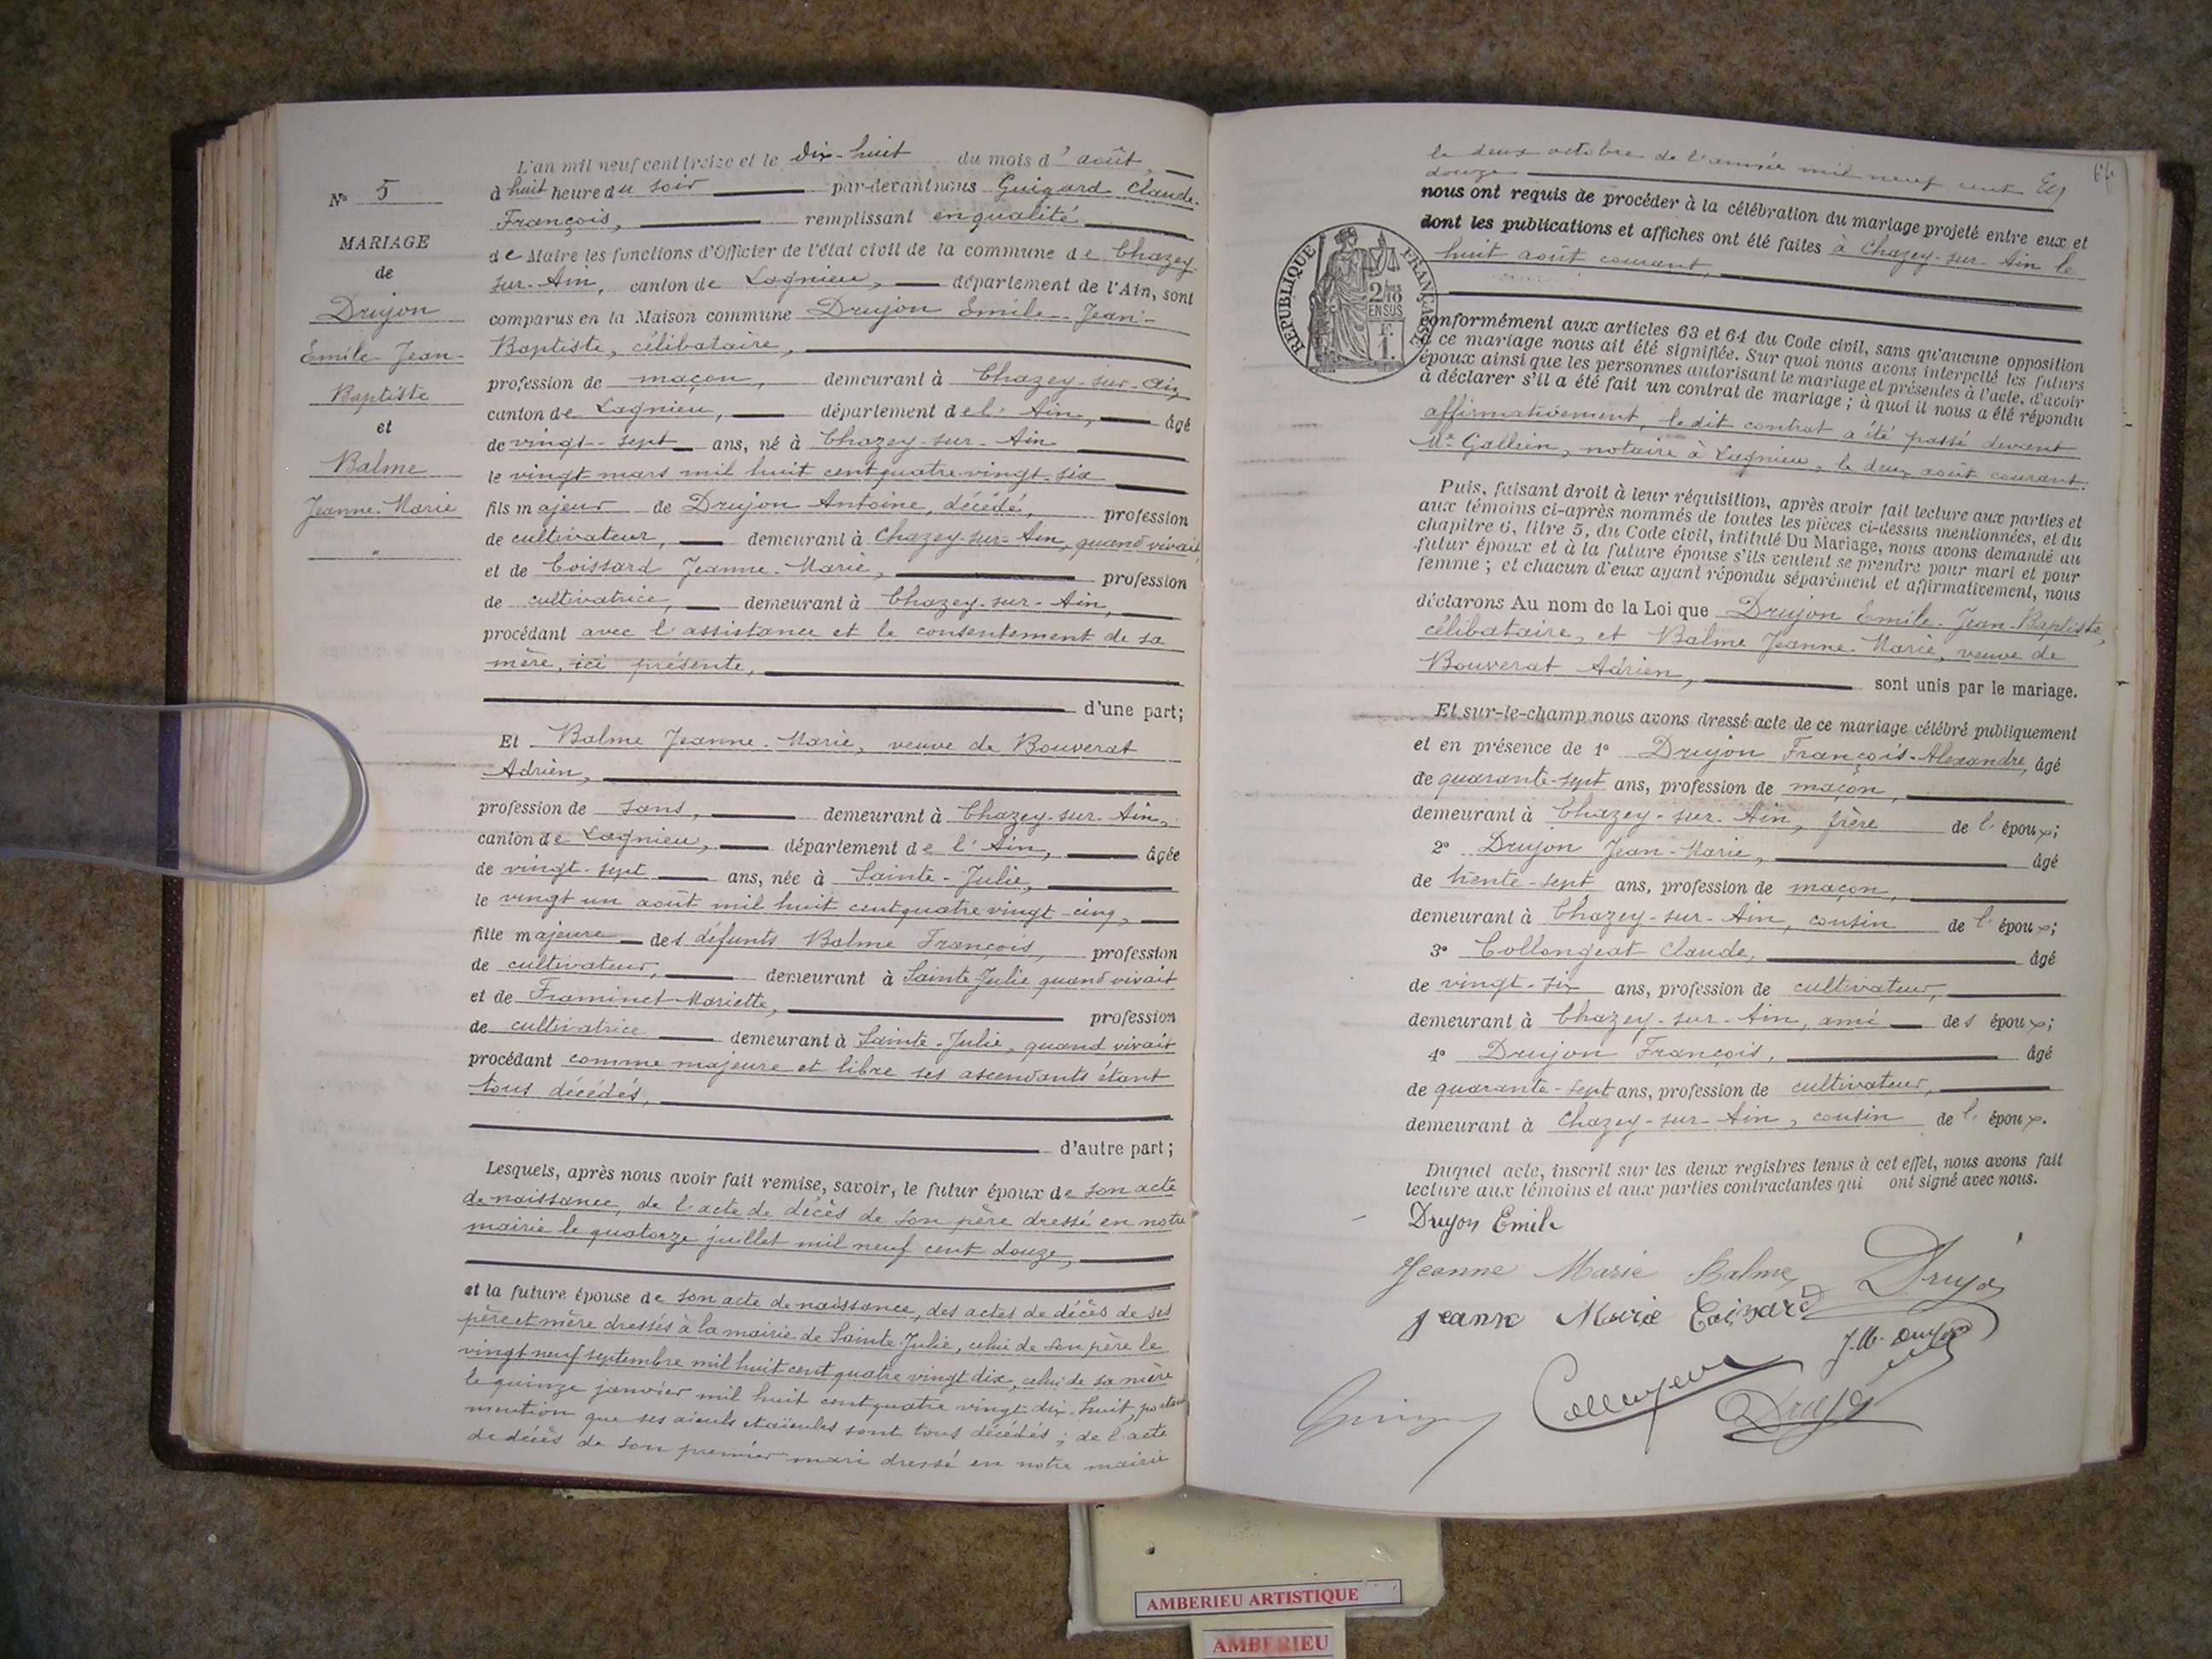 L'an mil neuf cent treize et le dix-huit du mois d'août,
N° 5
à huit heure du soir par-devant nous Guigard Claude-
François, remplissant en qualité
MARIAGE
de Maire les fonctions d'Officier de l'état civil de la commune de Chazey-
de
sur-Ain, canton de Lagnieu, département de l'Ain, sont
Drujon
comparus en la Maison commune Drujon Emile-Jean-
Emile-Jean-
Baptiste, célibataire,
Baptiste
profession de maçon, demeurant à Chazey-sur-Ain,
canton de Lagnieu, département de l'Ain, âgé
et
de vingt-sept ans, né à Chazey-sur-Ain
Balme
le vingt mars mil huit cent quatre-vingt-six
Jeanne-Marie
fils majeur de Drujon Antoine, décédé, profession
de cultivateur, demeurant à Chazey-sur-Ain, quand vivait
et de Coissard Jeanne-Marie, profession
de cultivatrice, demeurant à Chazey-sur-Ain,
procédant avec l'assistance et le consentement de sa
mère, ici présente,
d'une part;
Et Balme Jeanne-Marie, veuve de Bouverat
Adrien,
profession de sans, demeurant à Chazey-sur-Ain,
canton de Lagnieu, département de l'Ain, âgée
de vingt-sept ans, née à Sainte-Julie,
le vingt un août mil huit cent quatre vingt-cinq,
fille majeure des défunts Balme François, profession
de cultivateur, demeurant à Sainte Julie quand vivait
et de Framinet Mariette, profession
de cultivatrice demeurant à Sainte-Julie, quand vivait
procédant comme majeure et libre ses ascendants étant
tous décédés,
d'autre part;
Lesquels, après nous avoir fait remise, savoir, le futur époux de son acte
de naissance, de l'acte de décès de son père dressé en notre
mairie le quatorze juillet mil neuf cent douze,
et la future épouse de son acte de naissance, des actes de décès de ses
père et mère dressés à la mairie de Sainte Julie, celui de son père le
vingt neuf septembre mil huit cent quatre vingt dix, celui de sa mère
le quinze janvier mil huit cent quatre vingt dix-huit, portant
mention que ses aïeuls et aïeules sont tous décédés; de l'acte
de décès de son premier mari dressé en notre mairie
le deux octobre de l'année mil neuf cent
douze
nous ont requis de procéder à la célébration du mariage projeté entre eux et
dont les publications et affiches ont été faites à Chazey-sur-Ain le
huit août courant,
RÉPUBLIQUE FRANÇAISE
2/10
EN SUS
F.
1.
conformément aux articles 63 et 64 du Code civil, sans qu'aucune opposition
à ce mariage nous ait été signifiée. Sur quoi nous avons interpellé les futurs
époux ainsi que les personnes autorisant le mariage et présentes à l'acte, d'avoir
à déclarer s'il a été fait un contrat de mariage; à quoi il nous a été répondu
affirmativement, le dit contrat a été passé devant
Me Gallien, notaire à Lagnieu, le deux août courant.
Puis, faisant droit à leur réquisition, après avoir fait lecture aux parties et
aux témoins ci-après nommés de toutes les pièces ci-dessus mentionnées, et du
chapitre 6, titre 5, du Code civil, intitulé Du Mariage, nous avons demandé au
futur époux et à la future épouse s'ils veulent se prendre pour mari et pour
femme; et chacun d'eux ayant répondu séparément et affirmativement, nous
déclarons Au nom de la Loi que Drujon Emile-Jean-Baptiste,
célibataire, et Balme Jeanne-Marie, veuve de
Bouverat Adrien, sont unis par le mariage.
Et sur-le-champ nous avons dressé acte de ce mariage célébré publiquement
et en présence de 1° Drujon François-Alexandre, âgé
de quarante-sept ans, profession de maçon,
demeurant à Chazey-sur-Ain, frère de l'époux;
2° Drujon Jean-Marie, âgé
de trente-sept ans, profession de maçon,
demeurant à Chazey-sur-Ain, cousin de l'époux;
3° Collongeat Claude, âgé
de vingt-six ans, profession de cultivateur,
demeurant à Chazey-sur-Ain, ami des époux;
4° Drujon François, âgé
de quarante-sept ans, profession de cultivateur,
demeurant à Chazey-sur-Ain, cousin de l'époux.
Duquel acte, inscrit sur les deux registres tenus à cet effet, nous avons fait
lecture aux témoins et aux parties contractantes qui ont signé avec nous.
Drujon Emile
Jeanne Marie Balme Drujon
Jeanne Marie Coissard
J.M. Drujon
Drujon
AMBERIEU ARTISTIQUE
AMBERIEU